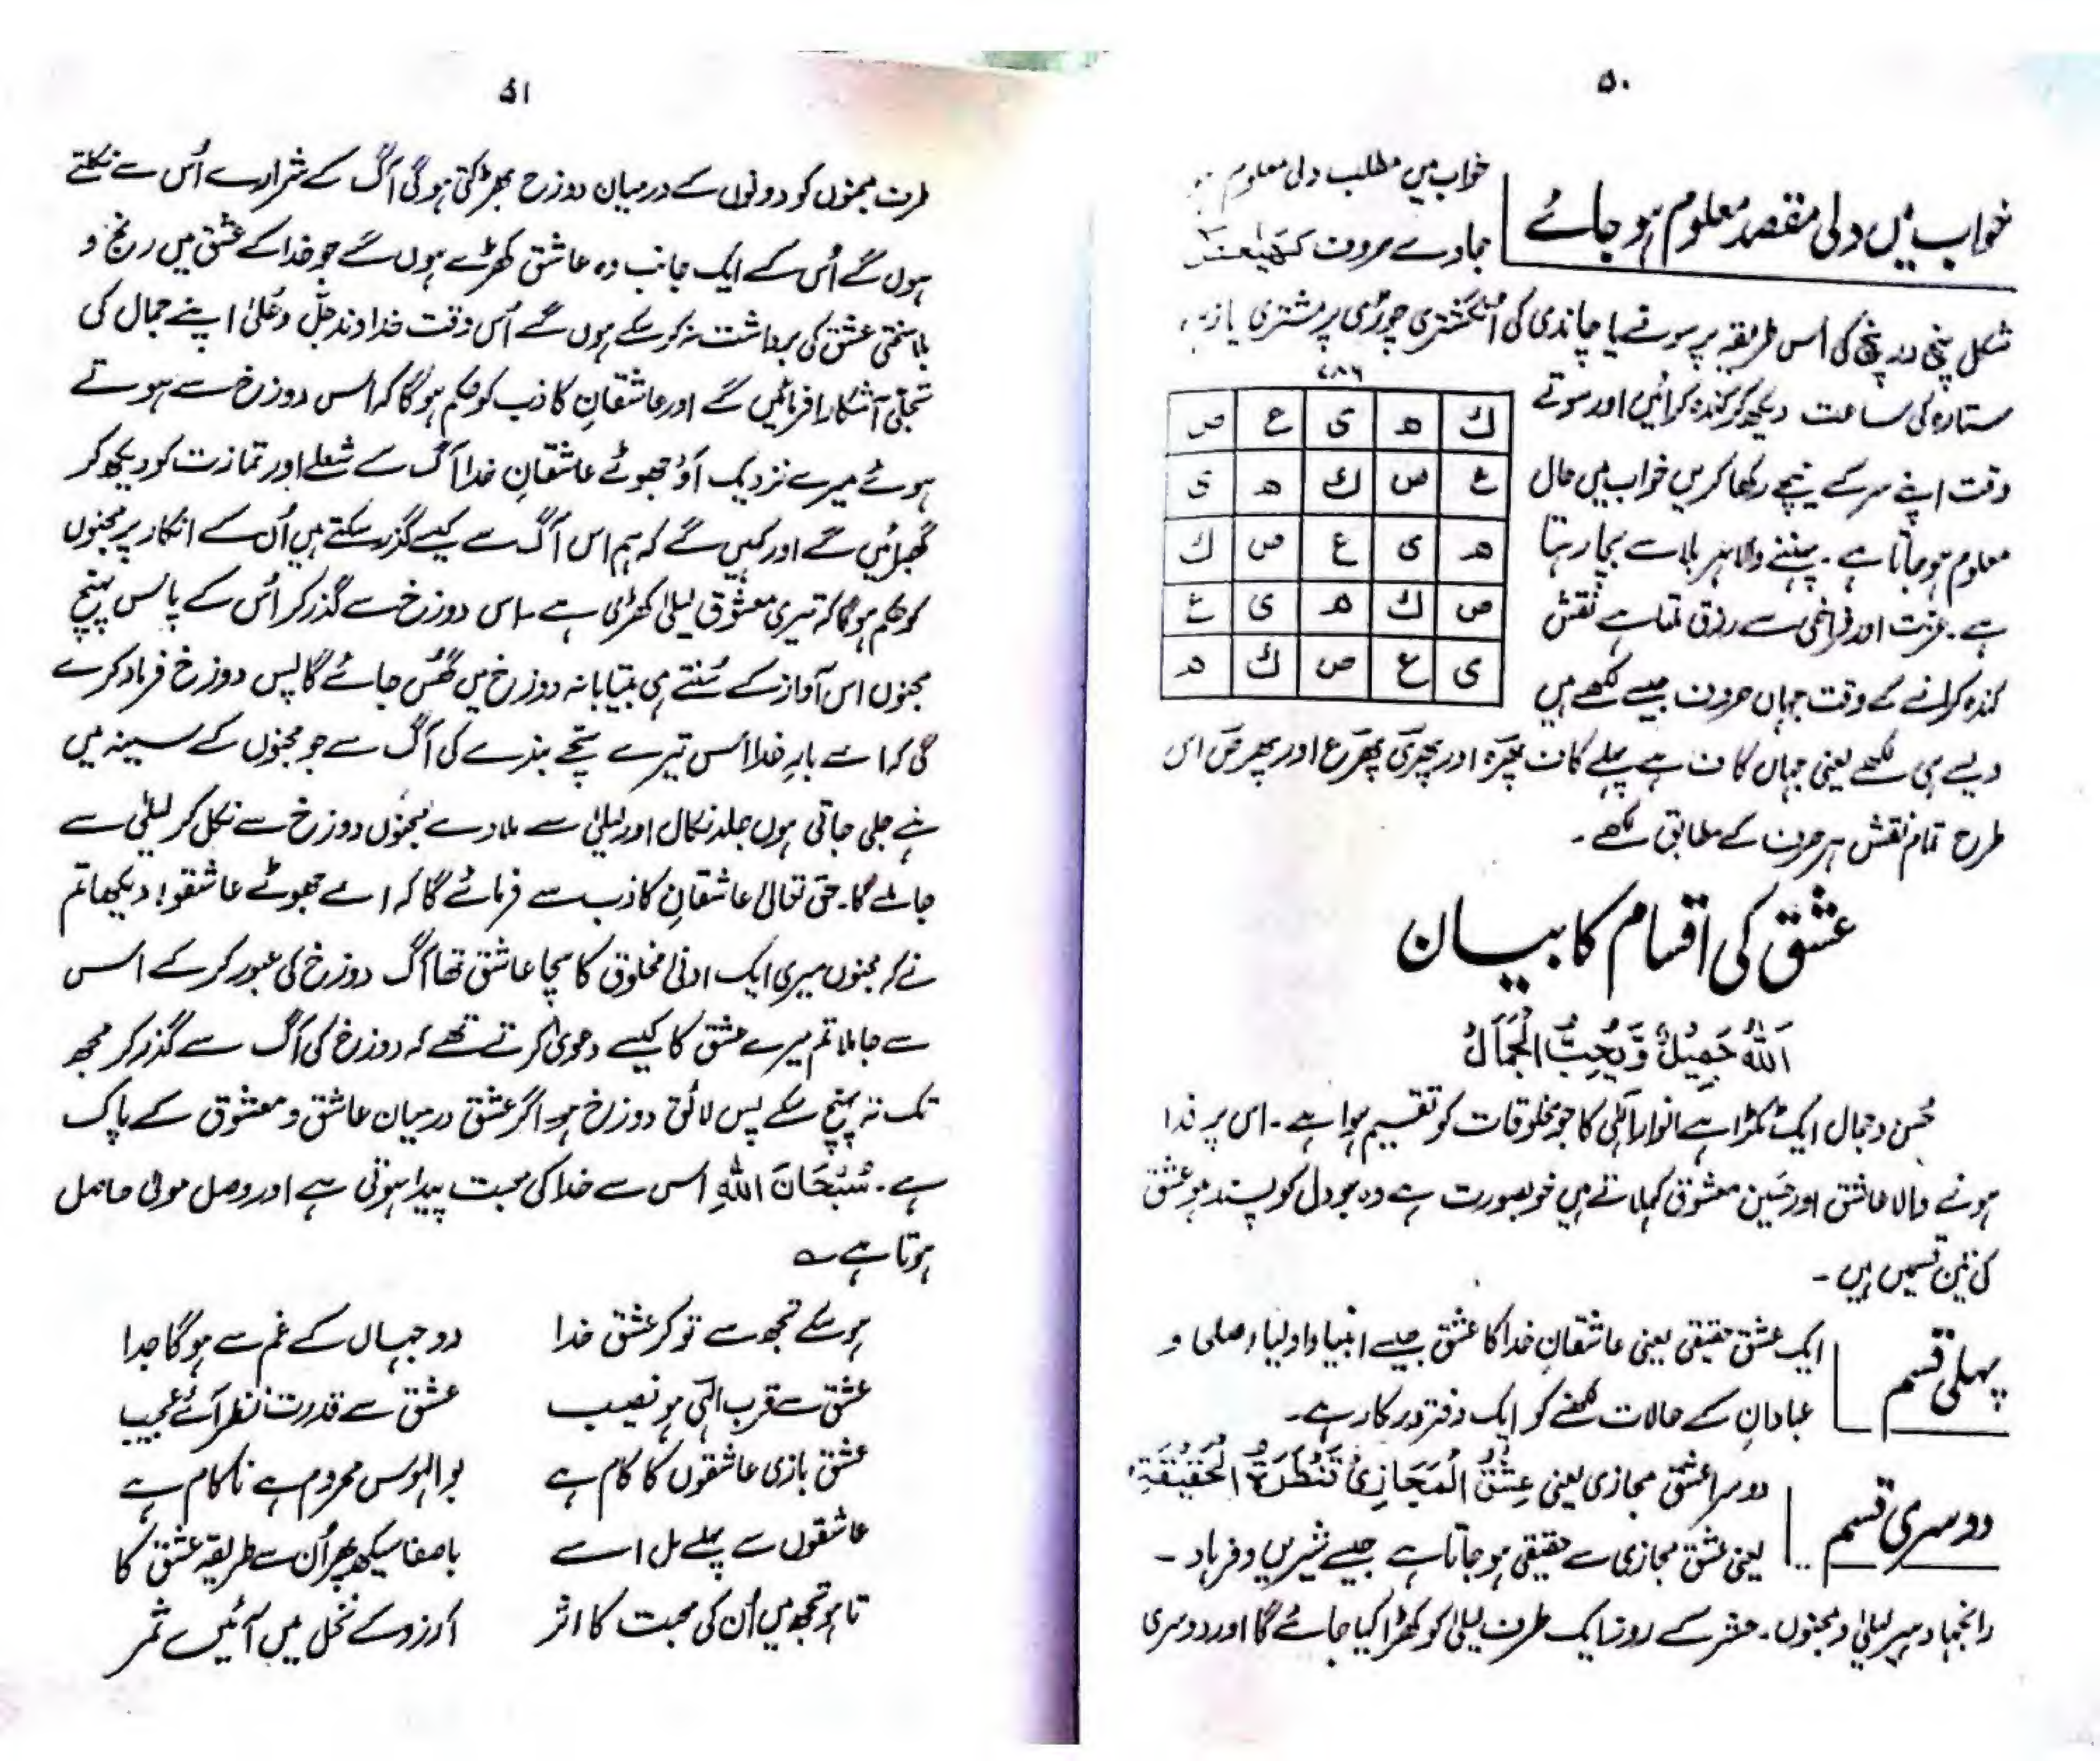 ۵۰
خواب میں دلی مقصد معلوم ہو جائے
خواب میں مطلب دلی معلوم
جاوے حروف کھیعص
شکل پنج در پنج کی اُس طریقہ پر سونے یا چاندی کی انگشتری چوڑی پر مشتری یا زہرہ
۷۸۶
ك ھ ی ع ص
ع ص ك ھ ی
ھ ی ع ص ك
ص ك ھ ی ع
ی ع ص ك ھ
ستارہ کی ساعت دیکھ کر کندہ کرائیں اور سوتے
وقت اپنے سر کے نیچے رکھا کریں خواب میں حال
معلوم ہو جاتا ہے۔ پہننے والا ہر بلا سے بچا رہتا
ہے۔ عزت اور فراخی سے رزق ملتا ہے نقش
کندہ کرانے کے وقت جہاں حروف جیسے لکھے ہیں
ویسے ہی لکھے یعنی جہاں کاف ہے پہلے کاف پھر ہ اور پھر ی پھر ع اور پھر ص اس
طرح تمام نقش ہر حرف کے مطابق لکھے۔
عشق کی اقسام کا بیان
اَللّٰهُ جَمِیْلٌ وَّیُحِبُّ الْجَمَالَ
حُسن و جمال ایک ٹکڑا ہے انوارِ الٰہی کا جو مخلوقات کو تقسیم ہوا ہے۔ اس پر فدا
ہونے والا عاشق اور حَسین معشوق کہلاتے ہیں خوبصورت ہے وہ جو دل کو پسند ہو عشق
کی تین قسمیں ہیں۔
پہلی قسم
ایک عشق حقیقی یعنی عاشقانِ خدا کا عشق جیسے انبیا و اولیا و صلی و
عبادانِ کے حالات لکھنے کو ایک دفتر درکار ہے۔
دوسری قسم
دوسرا عشق مجازی یعنی عِشْقُ الْمَجَازِیْ قَنْطَرَةُ الْحَقِیْقَةِ
یعنی عشق مجازی سے حقیقی ہو جاتا ہے جیسے شیریں و فرہاد۔
رانجھا و ہیر لیلیٰ و مجنوں۔ حشر کے روز ایک طرف لیلیٰ کو کھڑا کیا جائے گا اور دوسری
۵۱
طرف مجنوں کو دونوں کے درمیان دوزخ بھڑکتی ہو گی آگ کے شرارے اُس سے نکلتے
ہوں گے اُس کے ایک جانب وہ عاشق کھڑے ہوں گے جو خدا کے عشق میں رنج و
بلا سختی عشق کی برداشت نہ کر سکے ہوں گے اُس وقت خداوند جَلَّ وعُلیٰ اپنے جمال کی
تجلّی آشکارا فرمائیں گے اور عاشقانِ کاذب کو حکم ہو گا کہ اس دوزخ سے ہوتے
ہوئے میرے نزدیک آؤ جھوٹے عاشقانِ خدا آگ کے شعلے اور تمازت کو دیکھ کر
گھبرائیں گے اور کہیں گے کہ ہم اس آگ سے کیسے گزر سکتے ہیں اُن کے انکار پر مجنوں
کو حکم ہو گا کہ تیری معشوق لیلیٰ کھڑی ہے اس دوزخ سے گذر کر اُس کے پاس پہنچ
مجنوں اس آواز کے سُنتے ہی بیتابانہ دوزخ میں گھُس جائے گا پس دوزخ فریاد کرے
گی کہ اے بارِ خدا اس تیرے سچّے بندے کی آگ سے جو مجنوں کے سینہ میں
ہے جلی جاتی ہوں جلد نکال اور لیلیٰ سے ملا دے مجنوں دوزخ سے نکل کر لیلیٰ سے
جا ملے گا۔ حق تعالیٰ عاشقانِ کاذب سے فرمائے گا کہ اے جھوٹے عاشقو! دیکھا تم
نے کہ مجنوں میری ایک ادنیٰ مخلوق کا سچا عاشق تھا آگ دوزخ کی عبور کر کے اس
سے جا ملا تم میرے عشق کا کیسے دعویٰ کرتے تھے کہ دوزخ کی آگ سے گذر کر مجھ
تک نہ پہنچ سکے پس لائق دوزخ ہو اگر عشق درمیان عاشق و معشوق کے پاک
ہے۔ سُبْحَانَ اللّٰهِ اس سے خدا کی محبت پیدا ہوتی ہے اور وصل مولیٰ حاصل
ہوتا ہے ؎
ہو سکے تجھ سے تو کر عشق خدا دو جہاں کے غم سے ہو گا جدا
عشق سے قرب الٰہی ہو نصیب عشق سے قدرت نظر آئے عجیب
عشق بازی عاشقوں کا کام ہے بوالہوس محروم ہے ناکام ہے
عاشقوں سے پہلے مل اے باصفا سیکھ پھر اُن سے طریقہ عشق کا
تا ہو تجھ میں اُن کی محبت کا اثر آرزو کے نخل میں آئیں ثمر